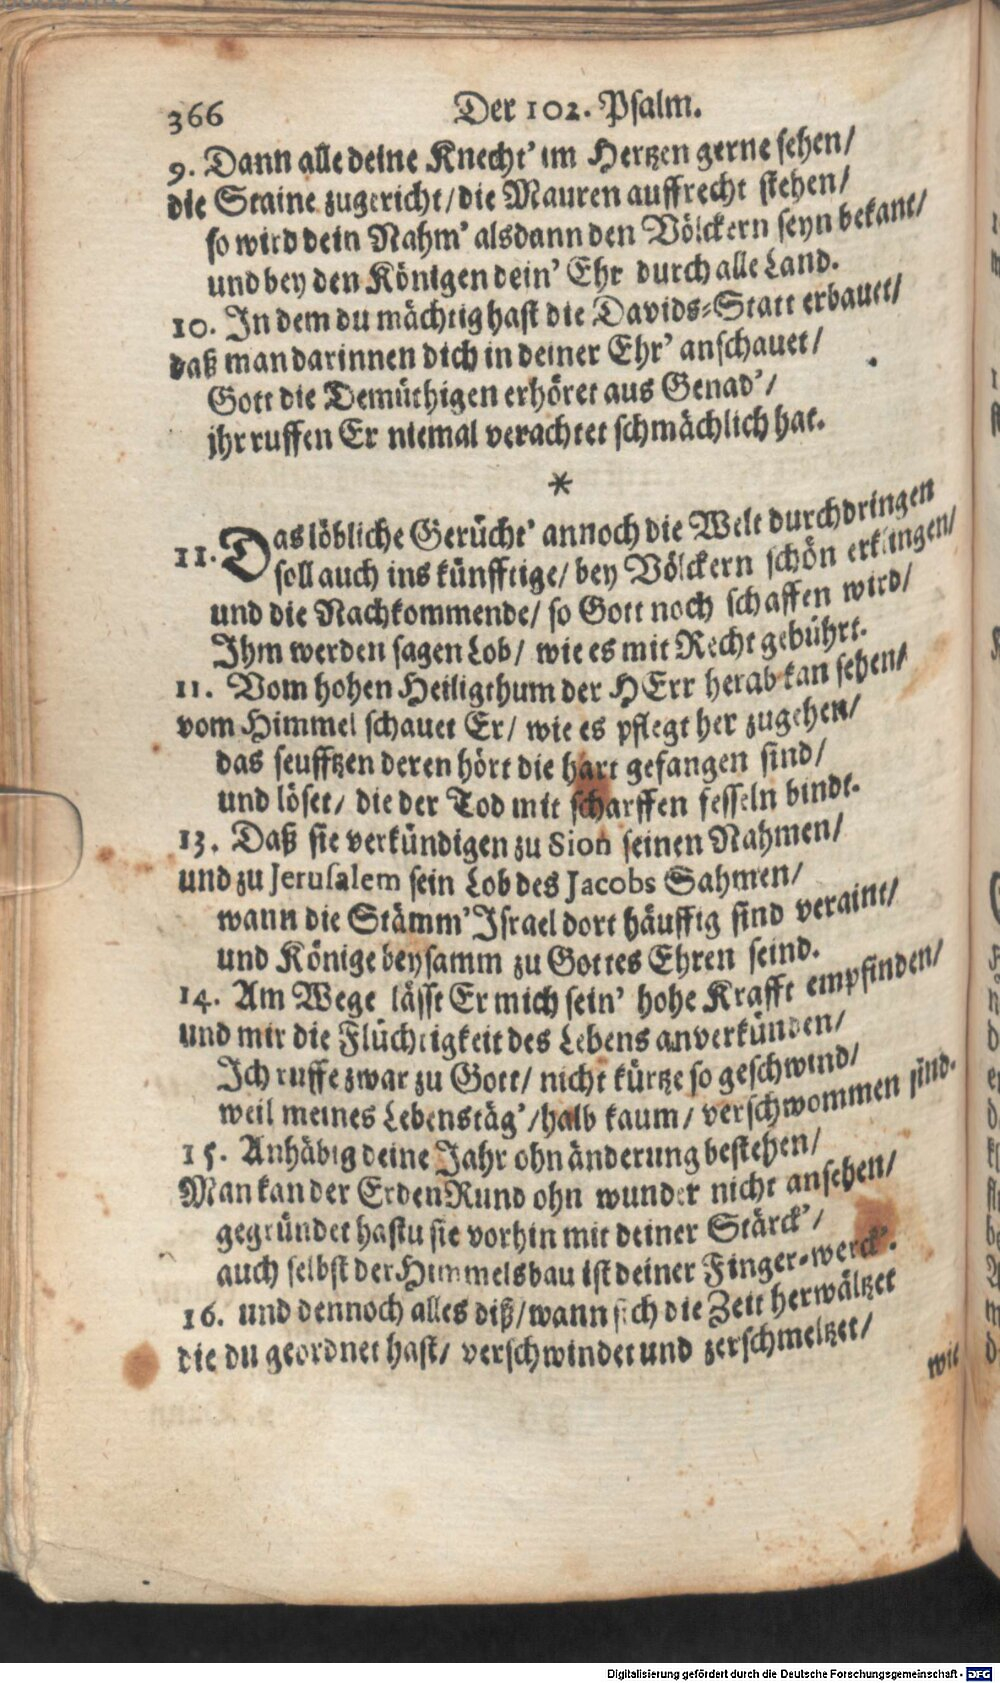 366 Der 102. Psalm.
9. Dann alle deine Knecht' im Hertzen gerne sehen/
die Staine zugericht/ die Mauren auffrecht stehen/
so wird dein Nahm' alsdann den Völckern seyn bekant/
und bey den Königen dein' Ehr durch alle Land.
10. In dem du mächtig hast die Davids-Statt erbauet/
daß man darinnen dich in deiner Ehr' anschauet/
Gott die Demüthigen erhöret aus Genad'/
jhr ruffen Er niemal verachtet schmächlich hat.
*
11. Das löbliche Gerücht' annoch die Welt durchdringen
soll auch ins künfftige/ bey Völckern schön erklingen/
und die Nachkommende/ so Gott noch schaffen wird/
Ihm werden sagen Lob/ wie es mit Recht gebührt.
11. Vom hohen Heiligthum der HErr herab kan sehen/
vom Himmel schauet Er/ wie es pflegt her zugehen/
das seufftzen deren hört die hart gefangen sind/
und löset/ die der Tod mit scharffen fesseln bindt.
13. Daß sie verkündigen zu Sion seinen Nahmen/
und zu Jerusalem sein Lob des Jacobs Sahmen/
wann die Stämm' Israel dort häuffig sind veraint/
und Könige beysamm zu Gottes Ehren seind.
14. Am Wege lässt Er mich sein' hohe Krafft empfinden/
und mir die Flüchtigkeit des Lebens anverkünden/
Ich ruffe zwar zu Gott/ nicht kürtze so geschwind/
weil meines Lebenstäg'/ halb kaum/ verschwommen sind.
15. Anhäbig deine Jahr ohn änderung bestehen/
Man kan der Erden Rund ohn wunder nicht ansehen/
gegründet hastu sie vorhin mit deiner Stärck'/
auch selbst der Himmelsbau ist deiner Finger-werck'.
16. und dennoch alles diß/ wann sich die Zeit herwältzet
die du geordnet hast/ verschwindet und zerschmeltzet/
wie
Digitalisierung gefördert durch die Deutsche Forschungsgemeinschaft - DFG